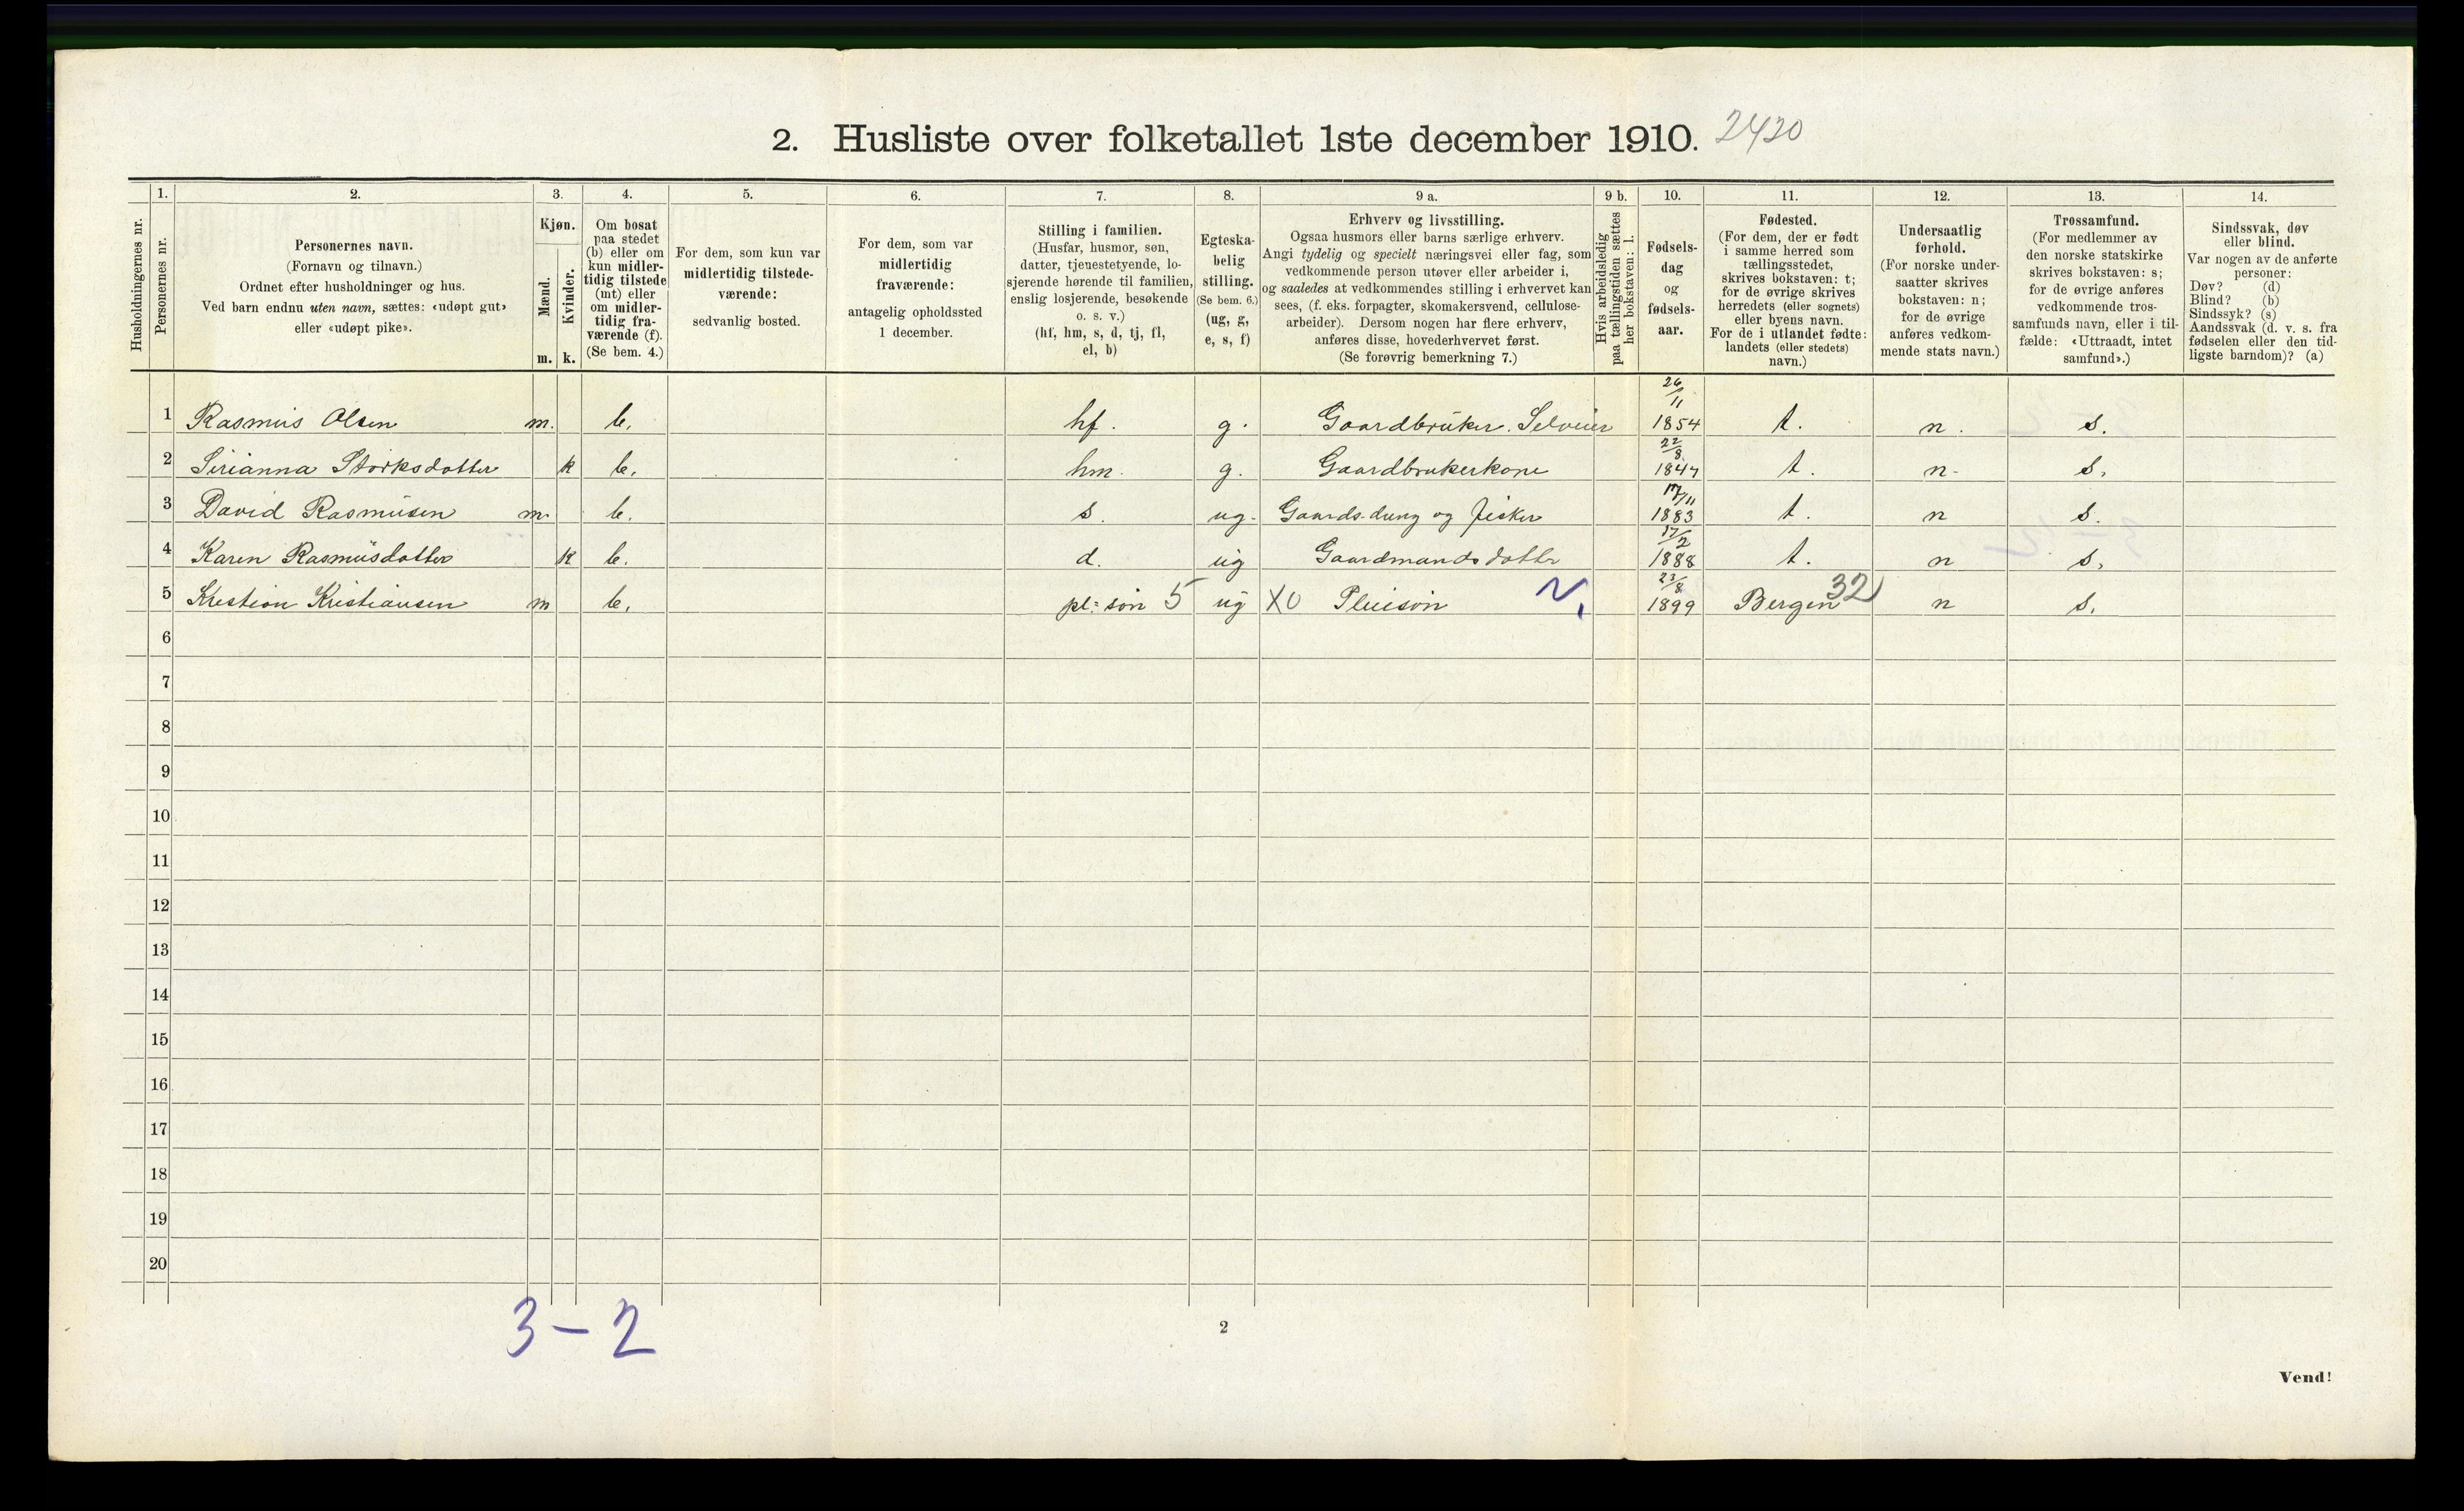 2. Husliste over folketallet 1ste december 1910. 2420
1. 2. 3. 4. 5. 6. 7. 8. 9 a. 9 b. 10. 11. 12. 13. 14.
Husholdningernes nr.
Personernes nr.
Personernes navn.
(Fornavn og tilnavn.)
Ordnet efter husholdninger og hus.
Ved barn endnu uten navn, sættes: «udøpt gut»
eller «udøpt pike».
Kjøn.
Mænd.
Kvinder.
m. k.
Om bosat
paa stedet
(b) eller om
kun midler-
tidig tilstede
(mt) eller
om midler-
tidig fra-
værende (f).
(Se bem. 4.)
For dem, som kun var
midlertidig tilstede-
værende:
sedvanlig bosted.
For dem, som var
midlertidig
fraværende:
antagelig opholdssted
1 december.
Stilling i familien.
(Husfar, husmor, søn,
datter, tjenestetyende, lo-
sjerende hørende til familien,
enslig losjerende, besøkende
o. s. v.)
(hf, hm, s, d, tj, fl,
el, b)
Egteska-
belig
stilling.
(Se bem. 6.)
(ug, g,
e, s, f)
Erhverv og livsstilling.
Ogsaa husmors eller barns særlige erhverv.
Angi tydelig og specielt næringsvei eller fag, som
vedkommende person utøver eller arbeider i,
og saaledes at vedkommendes stilling i erhvervet kan
sees, (f. eks. forpagter, skomakersvend, cellulose-
arbeider). Dersom nogen har flere erhverv,
anføres disse, hovederhvervet først.
(Se forøvrig bemerkning 7.)
Hvis arbeidsledig
paa tællingstiden sættes
her bokstaven: l.
Fødsels-
dag
og
fødsels-
aar.
Fødested.
(For dem, der er født
i samme herred som
tællingsstedet,
skrives bokstaven: t;
for de øvrige skrives
herredets (eller sognets)
eller byens navn.
For de i utlandet fødte:
landets (eller stedets)
navn.)
Undersaatlig
forhold.
(For norske under-
saatter skrives
bokstaven: n;
for de øvrige
anføres vedkom-
mende stats navn.)
Trossamfund.
(For medlemmer av
den norske statskirke
skrives bokstaven: s;
for de øvrige anføres
vedkommende tros-
samfunds navn, eller i til-
fælde: «Uttraadt, intet
samfund».)
Sindssvak, døv
eller blind.
Var nogen av de anførte
personer:
Døv? (d)
Blind? (b)
Sindssyk? (s)
Aandssvak (d. v. s. fra
fødselen eller den tid-
ligste barndom)? (a)
1 Rasmus Olsen m. b. hf. g. Gaardbruker. Selveier 26/11 1854 t. n. s.
2 Sirianna Størksdotter k b. hm. g. Gaardbrukerkone 22/8 1847 t. n. s.
3 David Rasmusen m. b. s. ug. Gaards-dreng og fisker 17/11 1883 t. n s.
4 Karen Rasmusdotter k b. d. ug Gaardmandsdotter 17/2 1888 t. n s.
5 Kristian Kristiansen m b. pl: søn 5 ug X0 Pleiesøn 23/8 1899 Bergen 32 n s.
6
7
8
9
10
11
12
13
14
15
16
17
18
19
20
3 – 2
2
Vend!